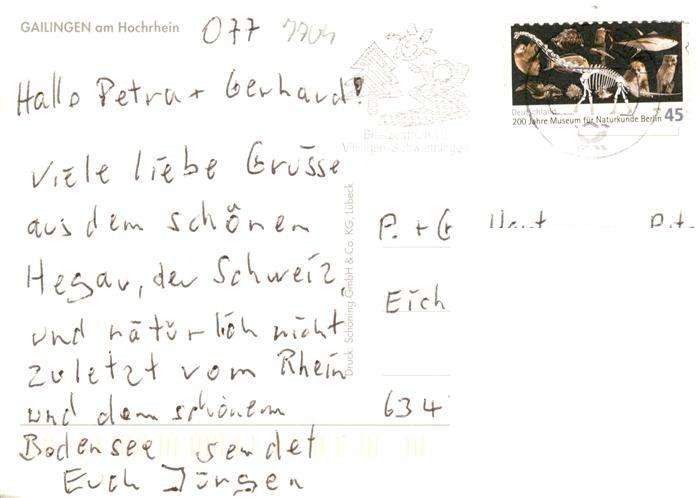 GAILINGEN am Hochrhein
077
Hallo Petra + Gerhard!
Viele liebe Grüsse
aus dem schönen
Hegau, der Schweiz,
und natürlich nicht
zuletzt vom Rhein
und dem schönem
Bodensee sendet
Euch Jürgen
Druck: Schöning GmbH & Co. KG, Lübeck
Briefzentrum
Villingen-Schwenningen
Deutschland
200 Jahre Museum für Naturkunde Berlin 45
P. + G
Eich
634